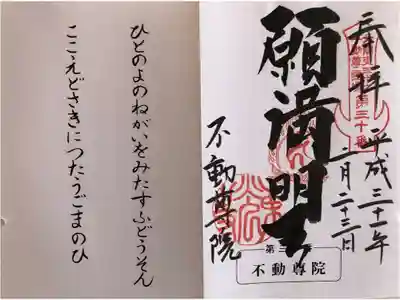 奉拝
平成三十一年
二月二十三日
第三十番
願満明王
不動尊院
第三
番
不動尊院
ひとのよのねがいをみたすふどうそん
ここえどさきにつたうごまのひ